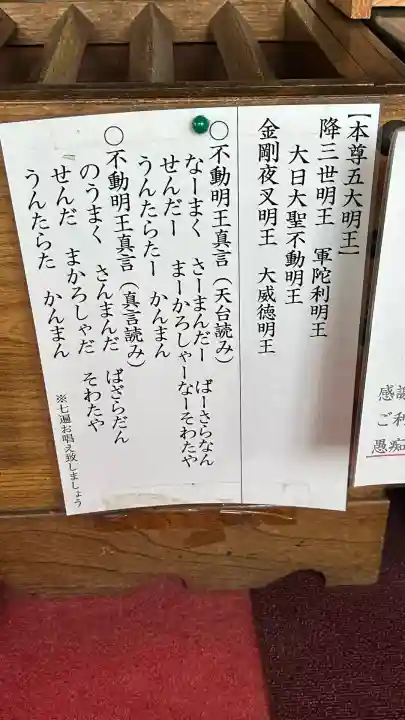 【本尊五大明王】
降三世明王　軍陀利明王
大日大聖不動明王
金剛夜叉明王　大威徳明王
○不動明王真言（天台読み）
なーまく　さーまんだー　ばーさらなん
せんだー　まーかろしゃーなーそわたや
うんたらたー　かんまん
○不動明王真言（真言読み）
のうまく　さんまんだ　ばざらだん
せんだ　まかろしゃだ　そわたや
うんたらた　かんまん
※七遍お唱え致しましょう
感謝
ご利
愚痴